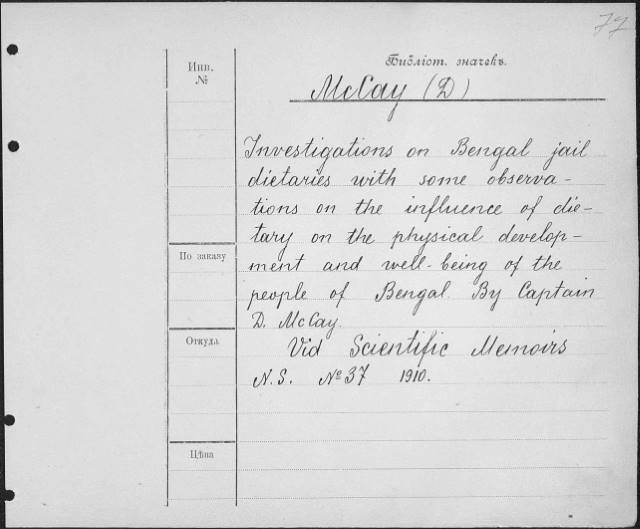 77
Инв.
№
Библіот. значекъ.
McCay (D)
Investigations on Bengal jail
dietaries with some observa-
tions on the influence of die-
tary on the physical develop-
ment and well-being of the
people of Bengal. By Captain
D. McCay.
Vid Scientific Memoirs
N.S. № 37 1910.
По заказу
Откуда
Цѣна